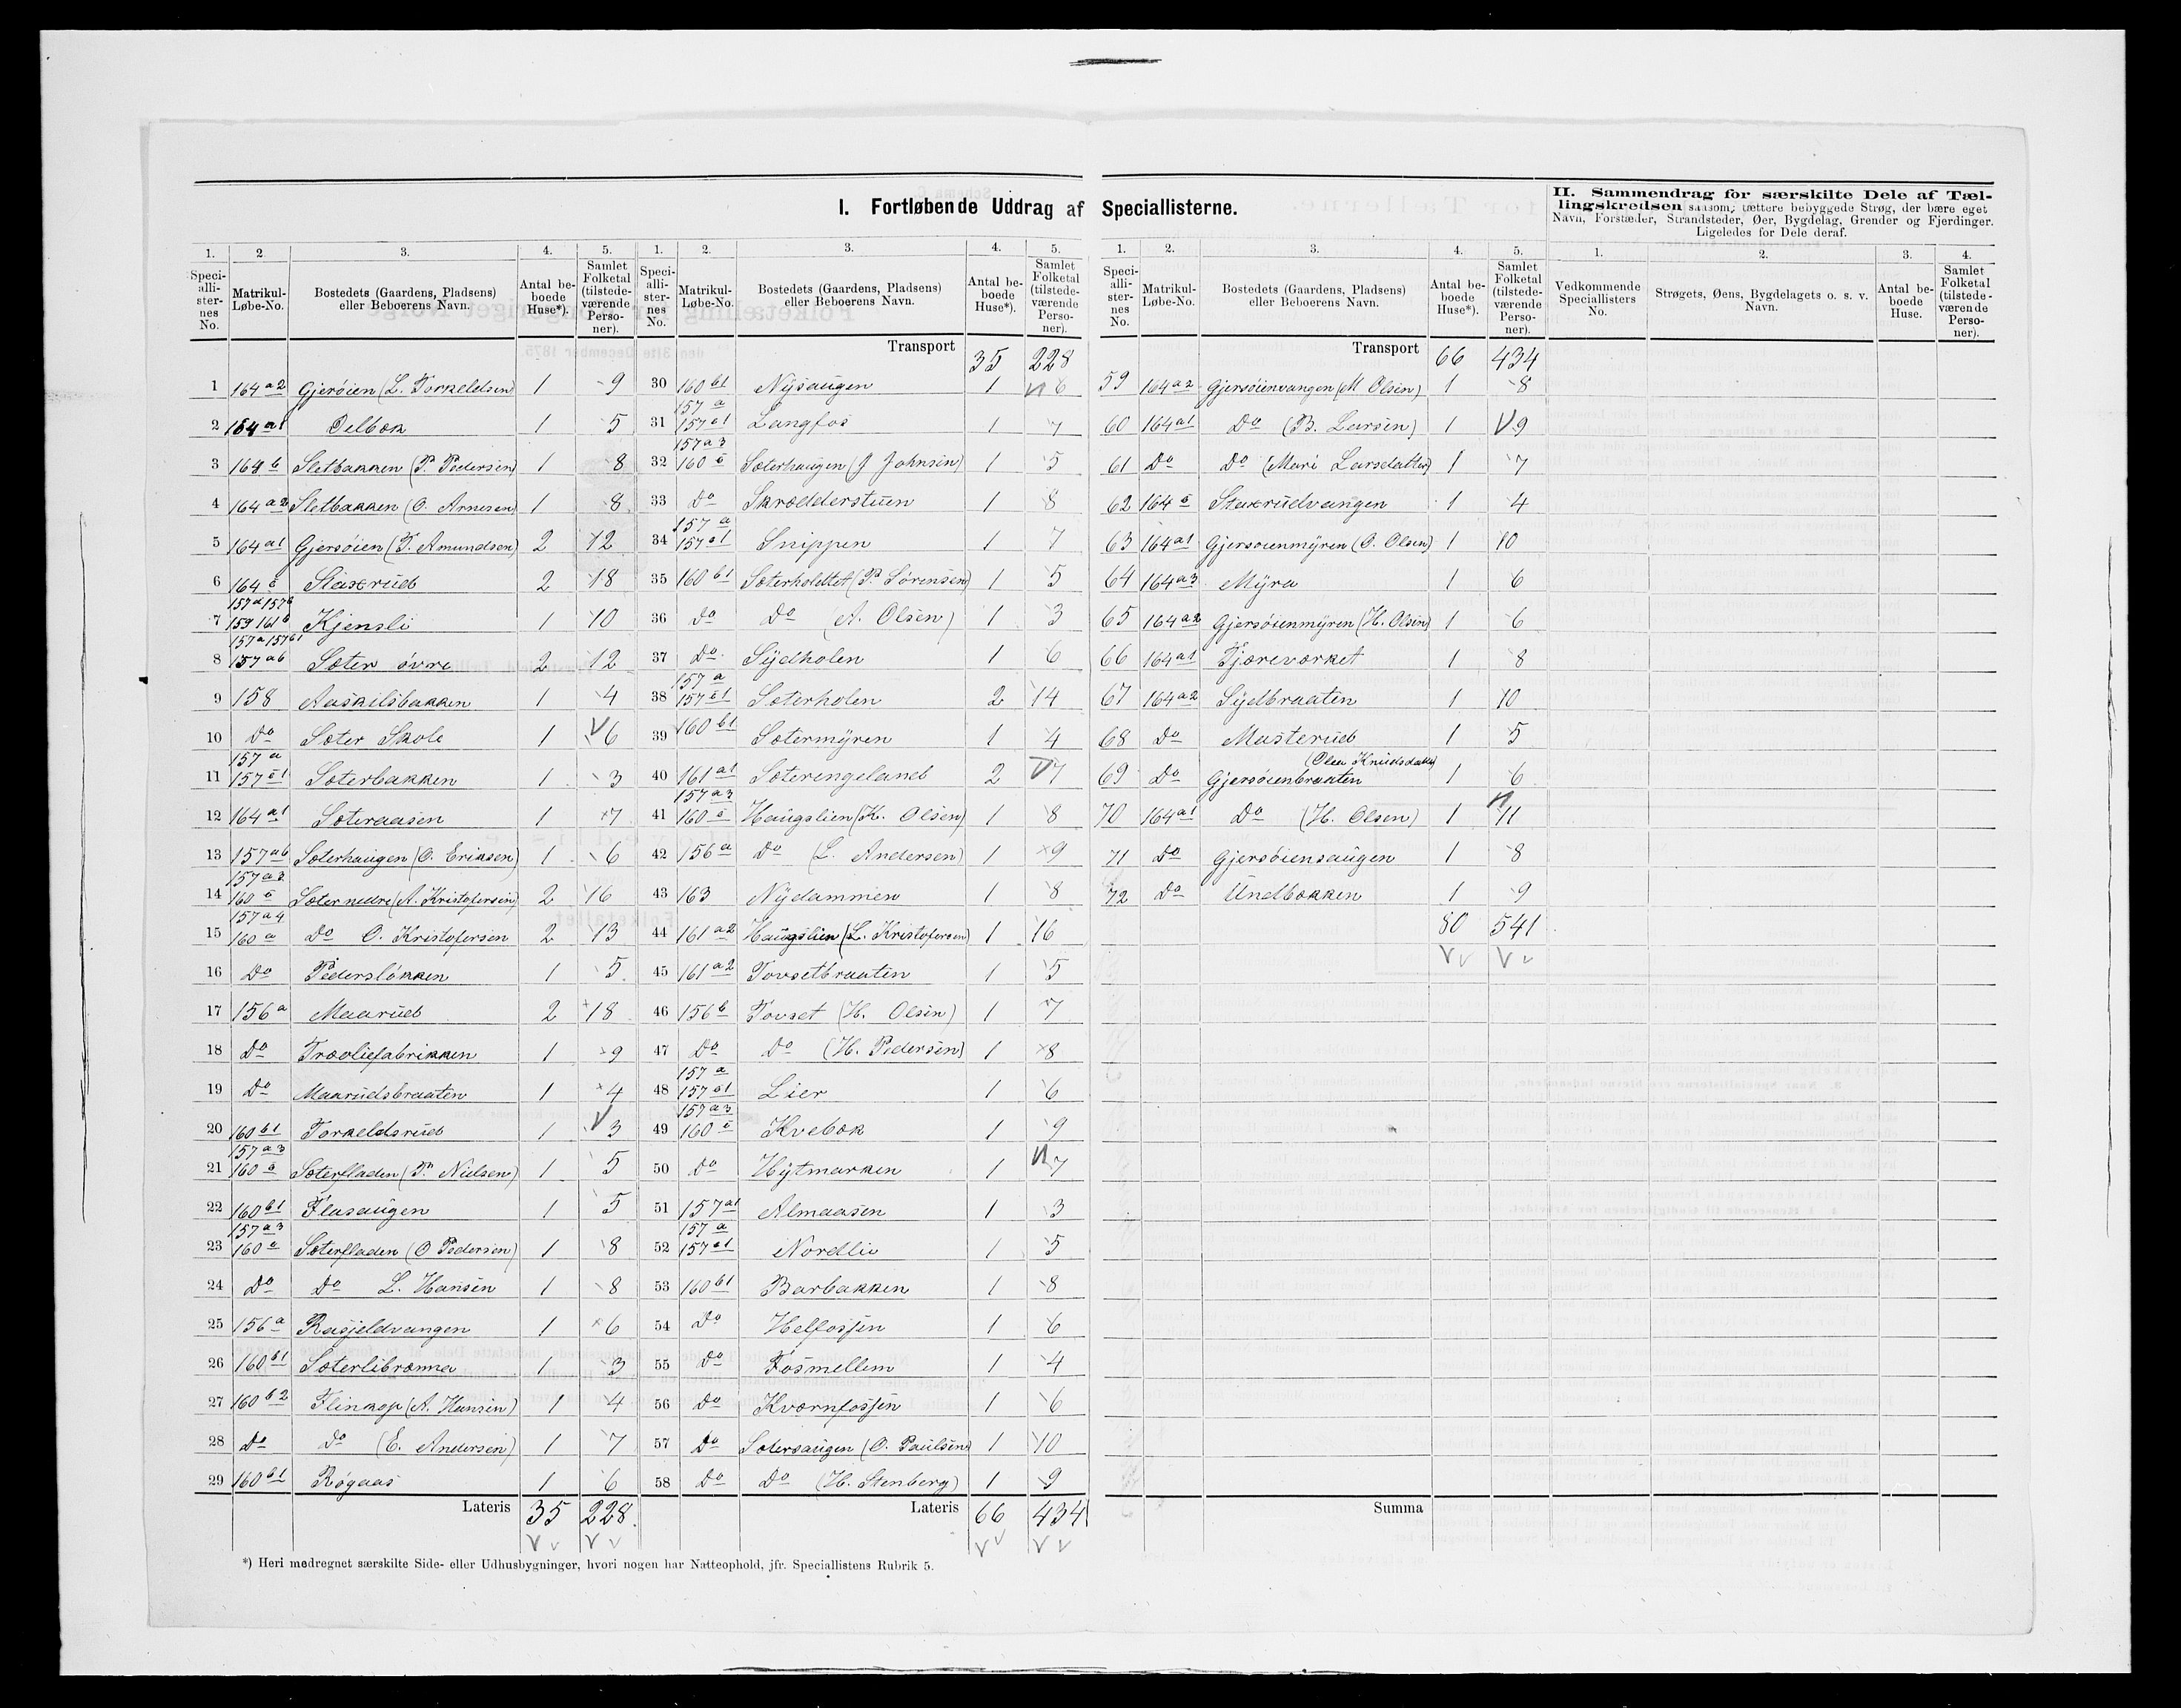 I. Fortløbende Uddrag af Speciallisterne.
II. Sammendrag for særskilte Dele af Tæl-
lingskredsen saasom: tættere bebyggede Strøg, der bære eget
Navn, Forstæder, Strandsteder, Øer, Bygdelag, Grender og Fjerdinger.
Ligeledes for Dele deraf.
1. 2. 3. 4. 5.
Speci-alli-ster-nes No. Matrikul-Løbe-No. Bostedets (Gaardens, Pladsens) eller Beboerens Navn. Antal be-boede Huse*). Samlet Folketal (tilstede-værende Perso-ner).
1 164 a2 Gjerøien (L. Torkeldsen) 1 9
2 164 a1 Delbæk 1 5
3 164 b Sletbakken (P. Pedersen) 1 8
4 164 a2 Sletbakken (O. Arnesen) 1 8
5 164 a1 Gjersøien (T. Amundsen) 2 12
6 164 c Staxrud 2 18
157 a 157 b
7 159 161 b Kjensli 1 10
157 a 157 c1
8 157 a6 Sæter øvre 2 12
9 158 Aaskilsbakken 1 4
10 Do Sæter Skole 1 6
157 a
11 157 c1 Sæterbakken 1 3
12 164 a1 Sæteraasen 1 7
13 157 a6 Sæterhaugen (O. Eriksen) 1 6
157 a3
14 160 c Sæter nedre (A. Kristofersen) 2 16
157 a4
15 160 a Do O. Kristofersen 2 13
16 Do Pedersløkken 1 5
17 156 a Maarud 2 18
18 Do Træoliefabrikken 1 9
19 Do Maarudsbraaten 1 4
20 160 b1 Torkeldsrud 1 3
157 a3
21 160 c Sæterfladen (P. Nielsen) 1 5
22 160 b1 Flasaugen 1 5
157 a3
23 160 c Sæterfladen (O Pedersen) 1 8
24 Do Do L. Hansen 1 8
25 156 a Rasjeldvangen 1 6
26 160 b1 Sæterlibrænna 1 3
27 160 b2 Flinkop (A. Hansen) 1 4
28 Do Do (E. Andersen) 1 7
29 160 b1 Røgaas 1 6
Lateris 35 228
1. 2. 3. 4. 5.
Speci-alli-ster-nes No. Matrikul-Løbe-No. Bostedets (Gaardens, Pladsens) eller Beboerens Navn. Antal be-boede Huse*). Samlet Folketal (tilstede-værende Perso-ner).
Transport 35 228
30 160 b1 Nysaugen 1 6
157 a
31 157 c1 Langfos 1 7
157 a3
32 160 c Sæterhaugen (J Johnsen) 1 5
33 Do Skrædderstuen 1 8
157 a
34 157 c1 Snippen 1 7
35 160 b1 Sæterholttet (P. Sørensen) 1 5
36 Do Do (A. Olsen) 1 3
37 Do Sydholen 1 6
157 a
38 157 c1 Sæterholen 2 14
39 160 b1 Sætermyren 1 4
40 161 a1 Sæterengeland 2 7
157 a3
41 160 c Haugslien (K. Olsen) 1 8
42 156 a Do (L. Andersen) 1 9
43 163 Nydammen 1 8
44 161 a2 Haugslien (L. Kristofersen) 1 16
45 161 a2 Tovsetbraaten 1 5
46 156 b Tovset (H. Olsen) 1 7
47 Do Do (H. Pedersen) 1 8
157 a
48 157 c1 Lier 1 6
157 a3
49 160 c Kvebæk 1 9
50 Do Hytmarken 1 7
51 157 a1 Almaasen 1 3
157 a
52 157 c1 Nordlie 1 5
53 160 b1 Barbakken 1 8
54 Do Helfossen 1 6
55 Do Fosmellem 1 4
56 Do Kværnfossen 1 6
57 Do Sætersaugen (O. Paulsen) 1 10
58 Do Do (H. Stenberg) 1 9
Lateris 66 434
1. 2. 3. 4. 5.
Speci-alli-ster-nes No. Matrikul-Løbe-No. Bostedets (Gaardens, Pladsens) eller Beboerens Navn. Antal be-boede Huse*). Samlet Folketal (tilstede-værende Perso-ner).
Transport 66 434
59 164 a2 Gjersøienvangen (M Olsen) 1 8
60 164 a1 Do (B. Larsen) 1 9
61 Do Do (Mari Larsdatter) 1 7
62 164 c Staxrudvangen 1 4
63 164 a1 Gjersøienmyren (O. Olsen) 1 10
64 164 a3 Myra 1 6
65 164 a2 Gjersøienmyren (H. Olsen) 1 6
66 164 a1 Tjæreværket 1 8
67 164 a2 Sydbraaten 1 10
68 Do Masterud 1 5
(Olea Knudsdatter)
69 Do Gjersøienbraaten 1 6
70 164 a1 Do (H. Olsen) 1 11
71 Do Gjersøiensaugen 1 8
72 Do Undbækken 1 9
80 541
Summa
1. 2. 3. 4.
Vedkommende Speciallisters No. Strøgets, Øens, Bygdelagets o. s. v. Navn. Antal be-boede Huse. Samlet Folketal (tilstede-værende Perso-ner).
*) Heri medregnet særskilte Side- eller Udhusbygninger, hvori nogen har Natteophold, jfr. Speciallistens Rubrik 5.